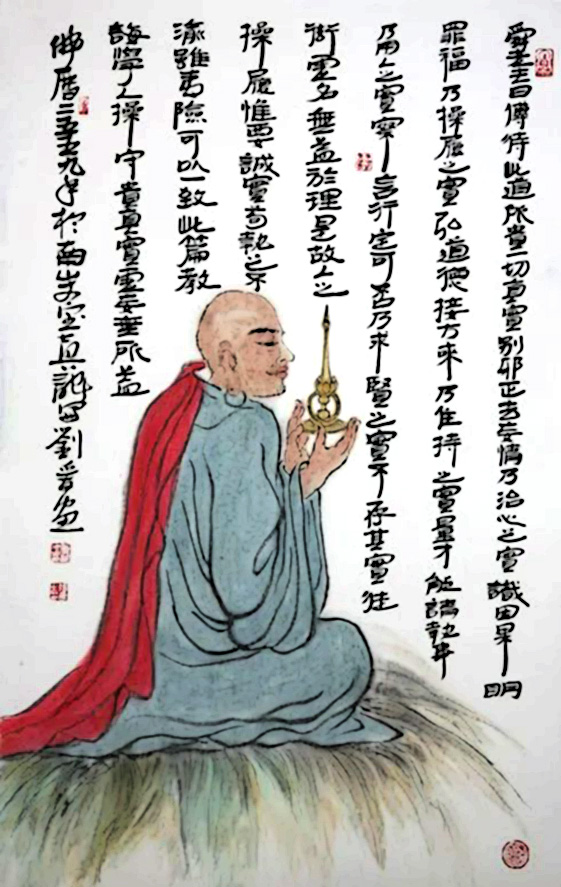 舜老曰傳持此道所貴一切真實別邪正去妄情乃治心之實識因果明
罪福乃操履之實弘道德接方來乃住持之實量才能請執事
乃用人之實察言行定可否乃求賢之實不存其實徒
衒虛名無益於理是故人之
操履惟要誠實苟執之不
渝雖夷險可以一致此篇教
誨學人操守貴真實虛妄無所益
佛曆二五五九年於西劉畫